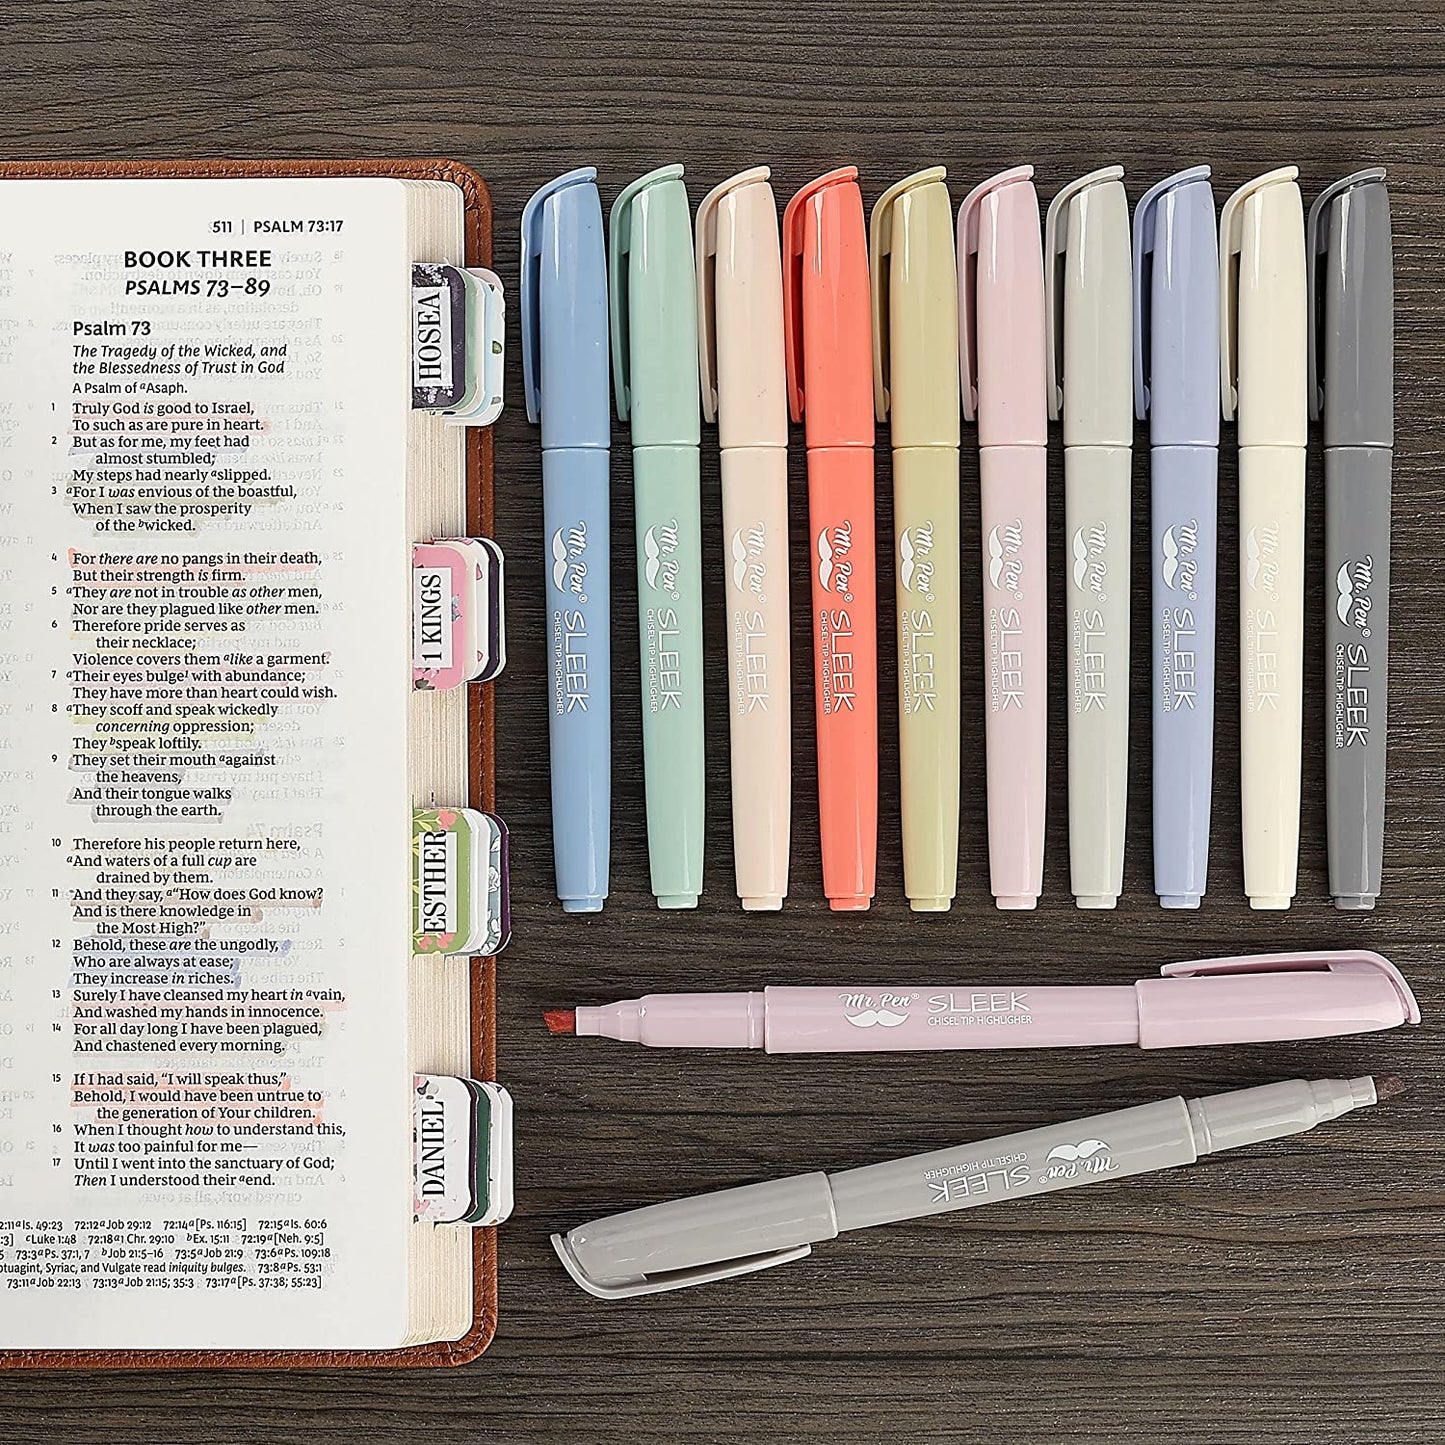 511 | PSALM 73:17
BOOK THREE
PSALMS 73–89
Psalm 73
The Tragedy of the Wicked, and
the Blessedness of Trust in God
A Psalm of aAsaph.
1 Truly God is good to Israel,
To such as are pure in heart.
2 But as for me, my feet had
almost stumbled;
My steps had nearly aslipped.
3 aFor I was envious of the boastful,
When I saw the prosperity
of the bwicked.
4 For there are no pangs in their death,
But their strength is firm.
5 aThey are not in trouble as other men,
Nor are they plagued like other men.
6 Therefore pride serves as
their necklace;
Violence covers them alike a garment.
7 aTheir eyes bulge1 with abundance;
They have more than heart could wish.
8 aThey scoff and speak wickedly
concerning oppression;
They bspeak loftily.
9 They set their mouth aagainst
the heavens,
And their tongue walks
through the earth.
10 Therefore his people return here,
aAnd waters of a full cup are
drained by them.
11 And they say, a“How does God know?
And is there knowledge in
the Most High?”
12 Behold, these are the ungodly,
Who are always at ease;
They increase in riches.
13 Surely I have cleansed my heart in avain,
And washed my hands in innocence.
14 For all day long I have been plagued,
And chastened every morning.
15 If I had said, “I will speak thus,”
Behold, I would have been untrue to
the generation of Your children.
16 When I thought how to understand this,
It was too painful for me—
17 Until I went into the sanctuary of God;
Then I understood their aend.
2:11 a Is. 49:23 72:12 a Job 29:12 72:14 a [Ps. 116:15] 72:15 a Is. 60:6
:3] c Luke 1:48 72:18 a 1 Chr. 29:10 b Ex. 15:11 72:19 a [Neh. 9:5]
5 73:3 a Ps. 37:1, 7 b Job 21:5–16 73:5 a Job 21:9 73:6 a Ps. 109:18
ptuagint, Syriac, and Vulgate read iniquity bulges. 73:8 a Ps. 53:1
73:11 a Job 22:13 73:13 a Job 21:15; 35:3 73:17 a [Ps. 37:38; 55:23]
HOSEA
1 KINGS
ESTHER
DANIEL
Mr. Pen® SLEEK
CHISEL TIP HIGHLIGHER
Mr. Pen® SLEEK
CHISEL TIP HIGHLIGHER
Mr. Pen® SLEEK
CHISEL TIP HIGHLIGHER
Mr. Pen® SLEEK
CHISEL TIP HIGHLIGHER
Mr. Pen® SLEEK
CHISEL TIP HIGHLIGHER
Mr. Pen® SLEEK
CHISEL TIP HIGHLIGHER
Mr. Pen® SLEEK
CHISEL TIP HIGHLIGHER
Mr. Pen® SLEEK
CHISEL TIP HIGHLIGHER
Mr. Pen® SLEEK
CHISEL TIP HIGHLIGHER
Mr. Pen® SLEEK
CHISEL TIP HIGHLIGHER
Mr. Pen® SLEEK
CHISEL TIP HIGHLIGHER
Mr. Pen® SLEEK
CHISEL TIP HIGHLIGHER